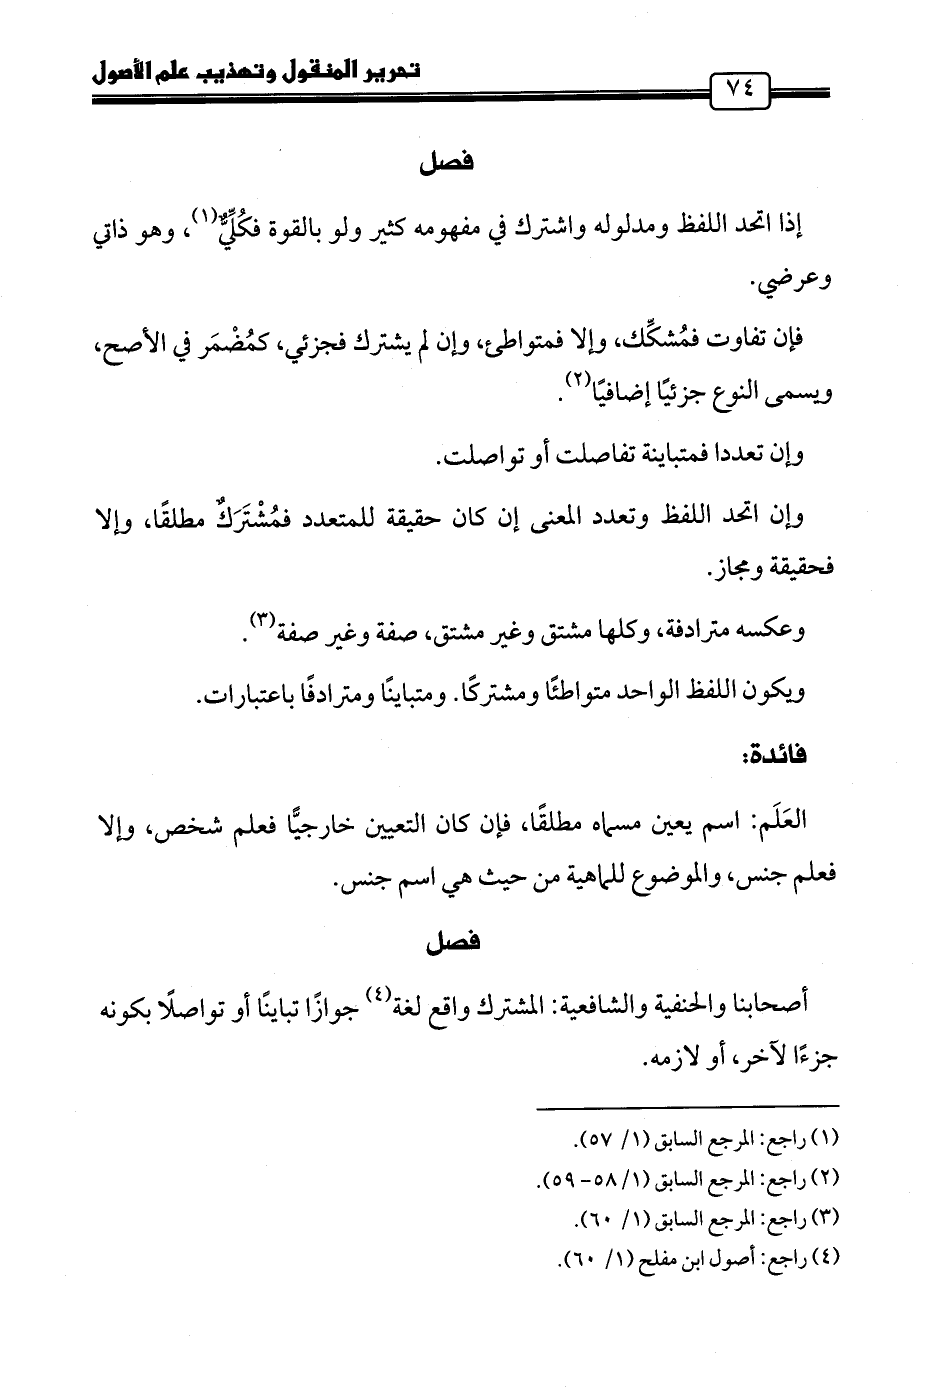 تحرير المنقول وتهذيب علم الأصول
٧٤
فصل
إذا اتحد اللفظ ومدلوله واشترك في مفهومه كثير ولو بالقوة فكُلِّيٌّ(١)، وهو ذاتي
وعرضي.
فإن تفاوت فمُشكِّك، وإلا فمتواطئ، وإن لم يشترك فجزئي، كمُضْمَر في الأصح،
ويسمى النوع جزئيًا إضافيًا(٢).
وإن تعددا فمتباينة تفاصلت أو تواصلت.
وإن اتحد اللفظ وتعدد المعنى إن كان حقيقة للمتعدد فمُشْتَرَكٌ مطلقًا، وإلا
فحقيقة ومجاز.
وعكسه مترادفة، وكلها مشتق وغير مشتق، صفة وغير صفة(٣).
ويكون اللفظ الواحد متواطئًا ومشتركًا. ومتباينًا ومترادفًا باعتبارات.
فائدة:
العَلَم: اسم يعين مسماه مطلقًا، فإن كان التعيين خارجيًّا فعلم شخص، وإلا
فعلم جنس، والموضوع للماهية من حيث هي اسم جنس.
فصل
أصحابنا والحنفية والشافعية: المشترك واقع لغة(٤) جوازًا تباينًا أو تواصلًا بكونه
جزءًا لآخر، أو لازمه.
(١) راجع: المرجع السابق (١/ ٥٧).
(٢) راجع: المرجع السابق (١/ ٥٨- ٥٩).
(٣) راجع: المرجع السابق (١/ ٦٠).
(٤) راجع: أصول ابن مفلح (١/ ٦٠).